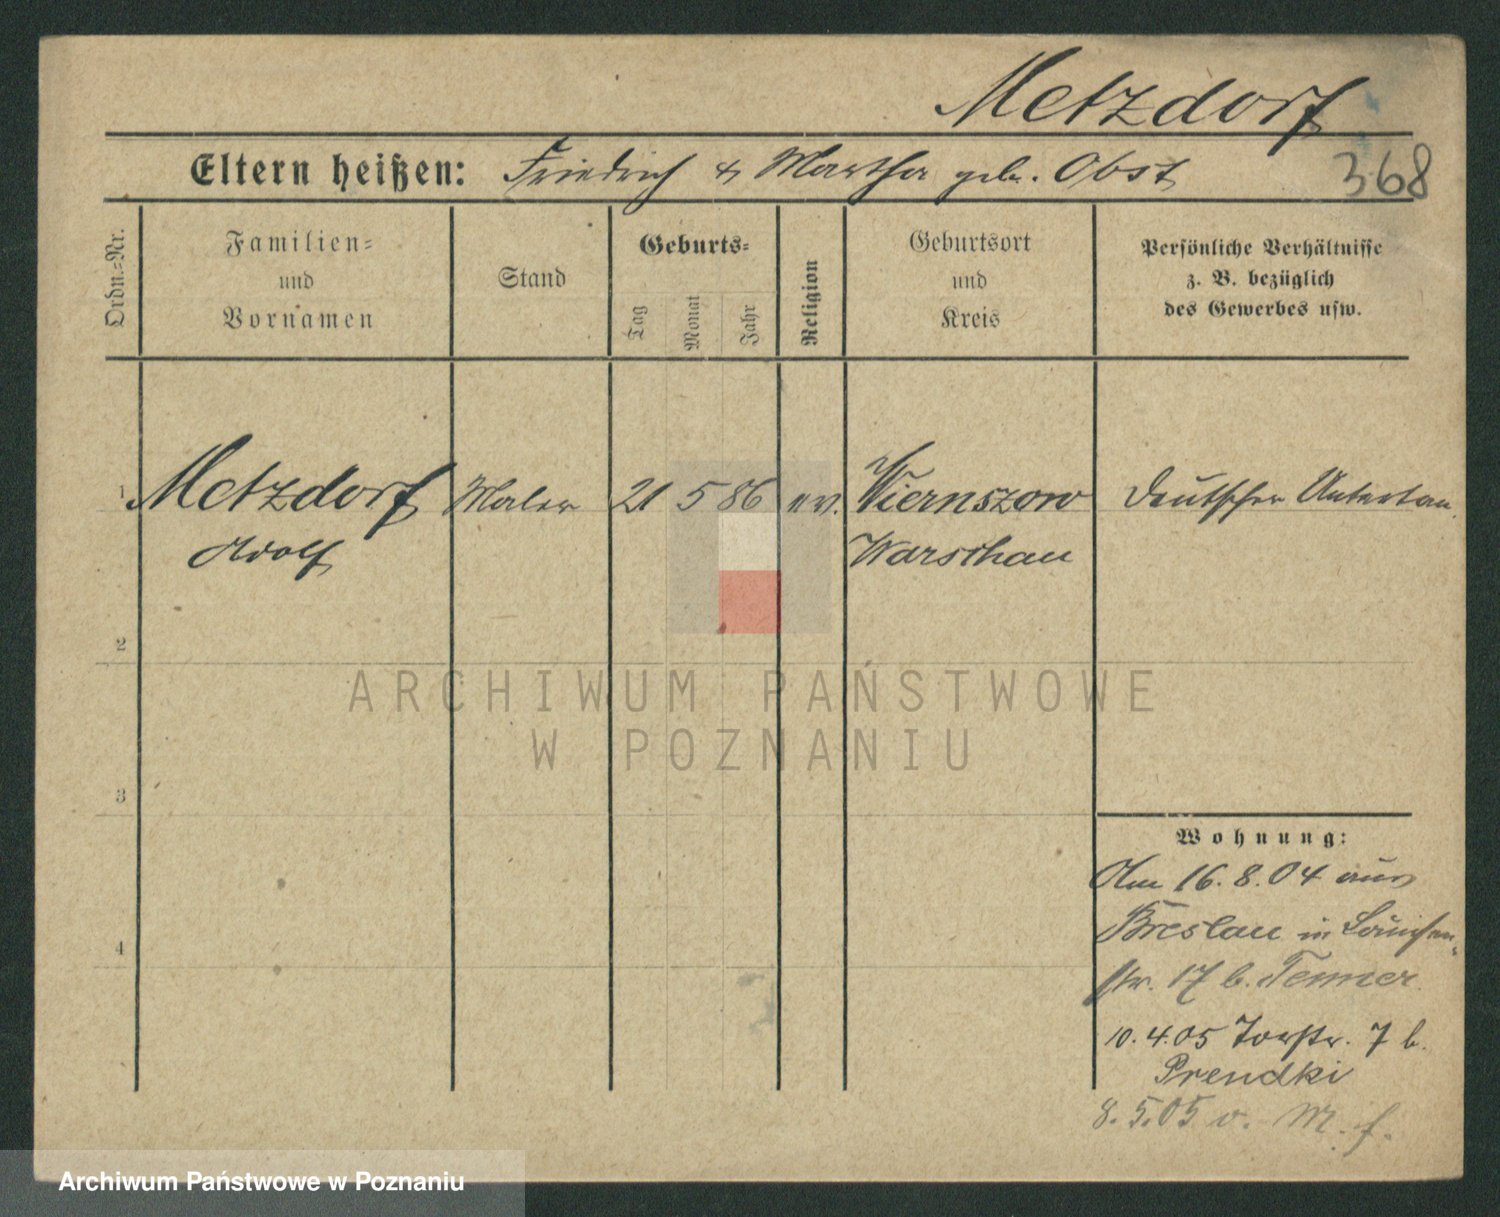 Metzdorf
Eltern heißen: Friedrich & Martha geb. Obst
368
Ordn.=Nr.
Familien=
und
Vornamen
Stand
Geburts=
Tag
Monat
Jahr
Religion
Geburtsort
und
Kreis
Persönliche Verhältnisse
z. B. bezüglich
des Gewerbes usw.
1 Metzdorf Maler 21 5 86 ev. Wiernszow Deutscher Untertan
Adolf Warschau
2
ARCHIWUM PAŃSTWOWE
W POZNANIU
3
Wohnung:
Am 16. 8. 04 aus
Breslau in Louisen-
4
str. 17 b. Tenner
10. 4. 05 Torstr. 7 b.
Prendki
8. 5. 05 v. M. f.
Archiwum Państwowe w Poznaniu